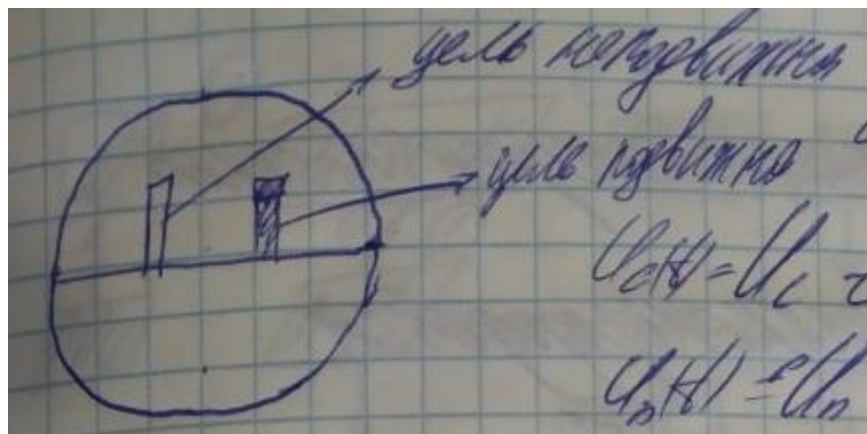 цель неподвижна
цель подвижна
U_c(t) = U_c
U_n(t) = U_n